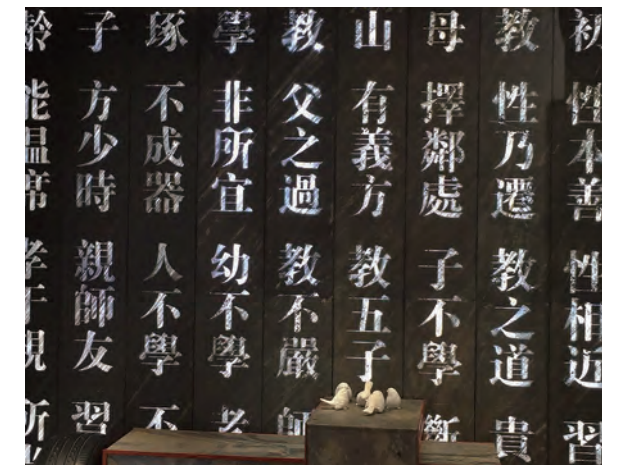 初 性本善 性相近 習
教 性乃遷 教之道 貴
母 擇鄰處 子不學 斷
山 有義方 教五子
教 父之過 教不嚴 師
學 非所宜 幼不學 老
琢 不成器 人不學 不
子 方少時 親師友 習
齡 能温席 孝于親 所